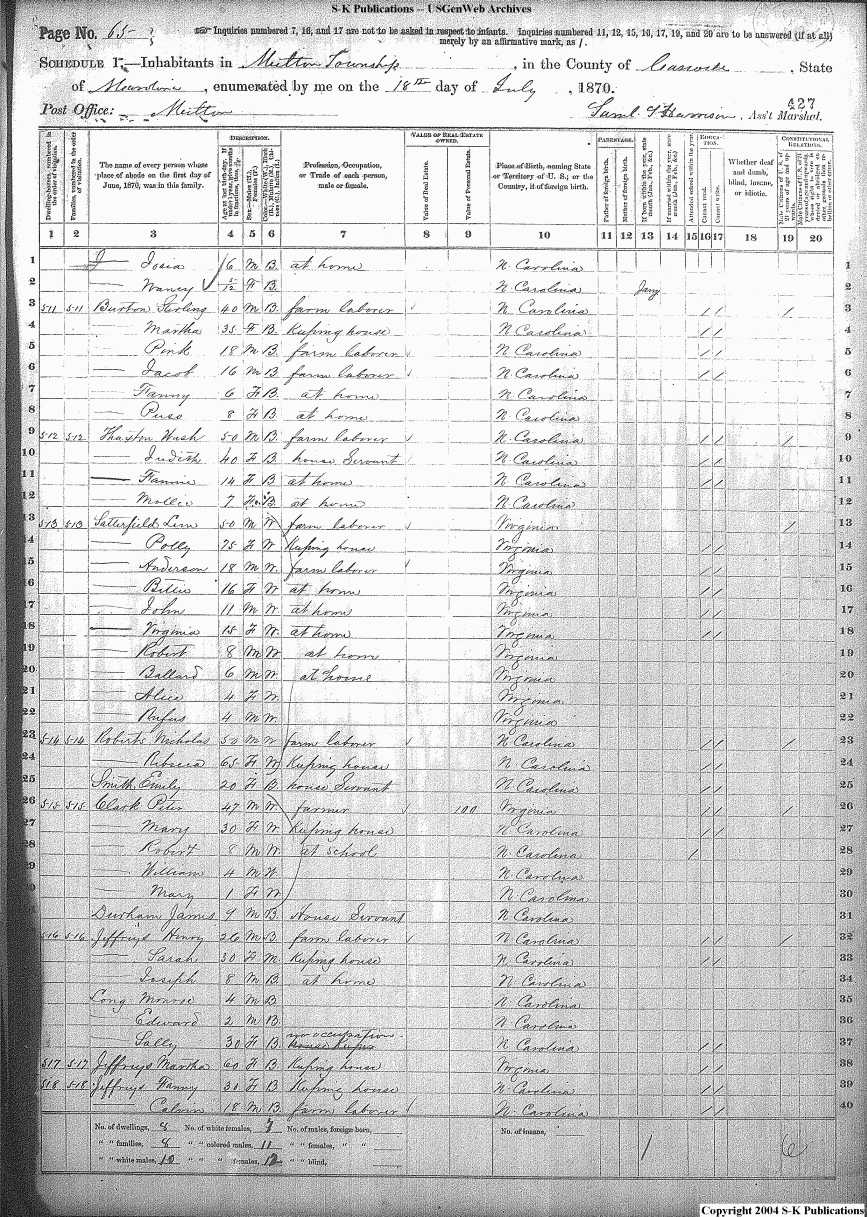 S-K Publications -- USGenWeb Archives
Page No. 65
Inquiries numbered 7, 16, and 17 are not to be asked in respect to infants. Inquiries numbered 11, 12, 15, 16, 17, 19, and 20 are to be answered (if at all) merely by an affirmative mark, as /.
SCHEDULE 1.—Inhabitants in Milton Township, in the County of Caswell, State
of N Carolina, enumerated by me on the 18th day of July, 1870.
Post Office: Milton
Saml T Harrison, Ass't Marshal.
427
DESCRIPTION.
VALUE OF REAL ESTATE OWNED.
PARENTAGE.
EDUCATION.
CONSTITUTIONAL RELATIONS.
Dwelling-houses, numbered in the order of visitation.
Families, numbered in the order of visitation.
The name of every person whose place of abode on the first day of June, 1870, was in this family.
Profession, Occupation, or Trade of each person, male or female.
Value of Real Estate.
Value of Personal Estate.
Place of Birth, naming State or Territory of U. S.; or the Country, if of foreign birth.
Father of foreign birth.
Mother of foreign birth.
Attended school within the year.
Cannot read.
Cannot write.
Whether deaf and dumb, blind, insane, or idiotic.
1 2 3 4 5 6 7 8 9 10 11 12 13 14 15 16 17 18 19 20
1 Josia 6 M B. at home N Carolina 1
2 Nancy 5/12 F B. N Carolina Jany 2
3 511 511 Burton Sterling 40 M B. farm laborer N Carolina / / / 3
4 Martha 35 F B. Keeping house N Carolina / / 4
5 Pink 18 M B. farm laborer N Carolina / / 5
6 Jacob 16 M B. farm laborer N Carolina / / 6
7 Fanny 6 F B. at home N Carolina 7
8 Puss 8 F B. at home N Carolina 8
9 512 512 Thaxton Wash 50 M B. farm laborer N Carolina / / / 9
10 Judith 40 F B. house Servant N Carolina / / 10
11 Fannie 14 F B at home N Carolina / / 11
12 Mollie 7 F B. at home N Carolina 12
13 513 513 Satterfield Lim 50 M W farm laborer Virginia / 13
14 Polly 75 F W. Keeping house Virginia / / 14
15 Anderson 18 M W. farm laborer Virginia / / 15
16 Bettie 16 F W. at home Virginia / / 16
17 John 11 M W. at home Virginia / / 17
18 Virginia 15 F W. at home Virginia / / 18
19 Robert 8 M W. at home Virginia 19
20 Ballard 6 M W. at home Virginia 20
21 Alice 4 F W. Virginia 21
22 Rufus 4 M W. Virginia 22
23 514 514 Roberts Nicholas 50 M W farm laborer N Carolina / / / 23
24 Rebecca 65 F W Keeping house N Carolina / / 24
25 Smith Emily 20 F B. house Servant N Carolina / / 25
26 515 515 Clark Peter 47 M W. farmer 100 Virginia / / / 26
27 Mary 30 F W. Keeping house N Carolina / / 27
28 Robert 8 M W. at school N Carolina / 28
29 William 4 M W. N Carolina 29
Mary 1 F W N Carolina 30
Durham James 9 M B. House Servant N Carolina 31
516 516 Jeffreys Henry 26 M B. farm laborer N Carolina / / / 32
Sarah 30 F M. Keeping house N Carolina / / 33
Joseph 8 M B. at home N Carolina 34
Long Monroe 4 M B N Carolina 35
Edward 2 M B. N Carolina 36
Sally 30 F B no occupation N Carolina / / 37
517 517 Jeffreys Martha 60 F B. Keeping house Virginia / / 38
518 518 Jeffreys Nanny 31 F B Keeping house N Carolina / / 39
Calvin 18 M B. farm laborer N Carolina / / 40
No. of dwellings, 8 No. of white females, 7 No. of males, foreign born, No. of insane,
" " families, 8 " " colored males, 11 " " females, " " 1 6
" " white males, 10 " " " females, 12 " " blind,
Copyright 2004 S-K Publications